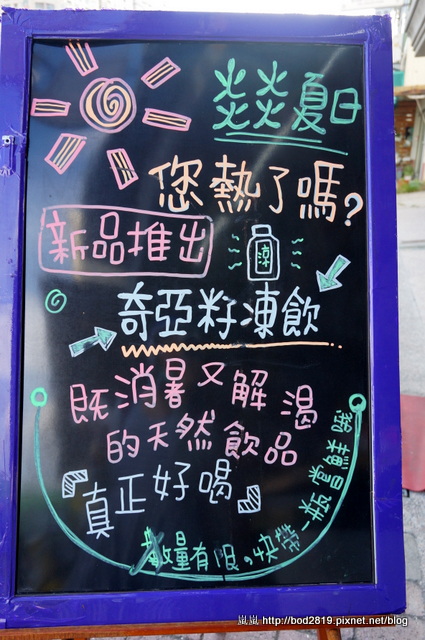 燚燚夏日
您熱了嗎?
新品推出
涼
奇亞籽凍飲
既消暑又解渴
的天然飲品
『真正好喝』
數量有限。快帶一瓶嘗鮮哦
嵐嵐 http://bod2819.pixnet.net/blog